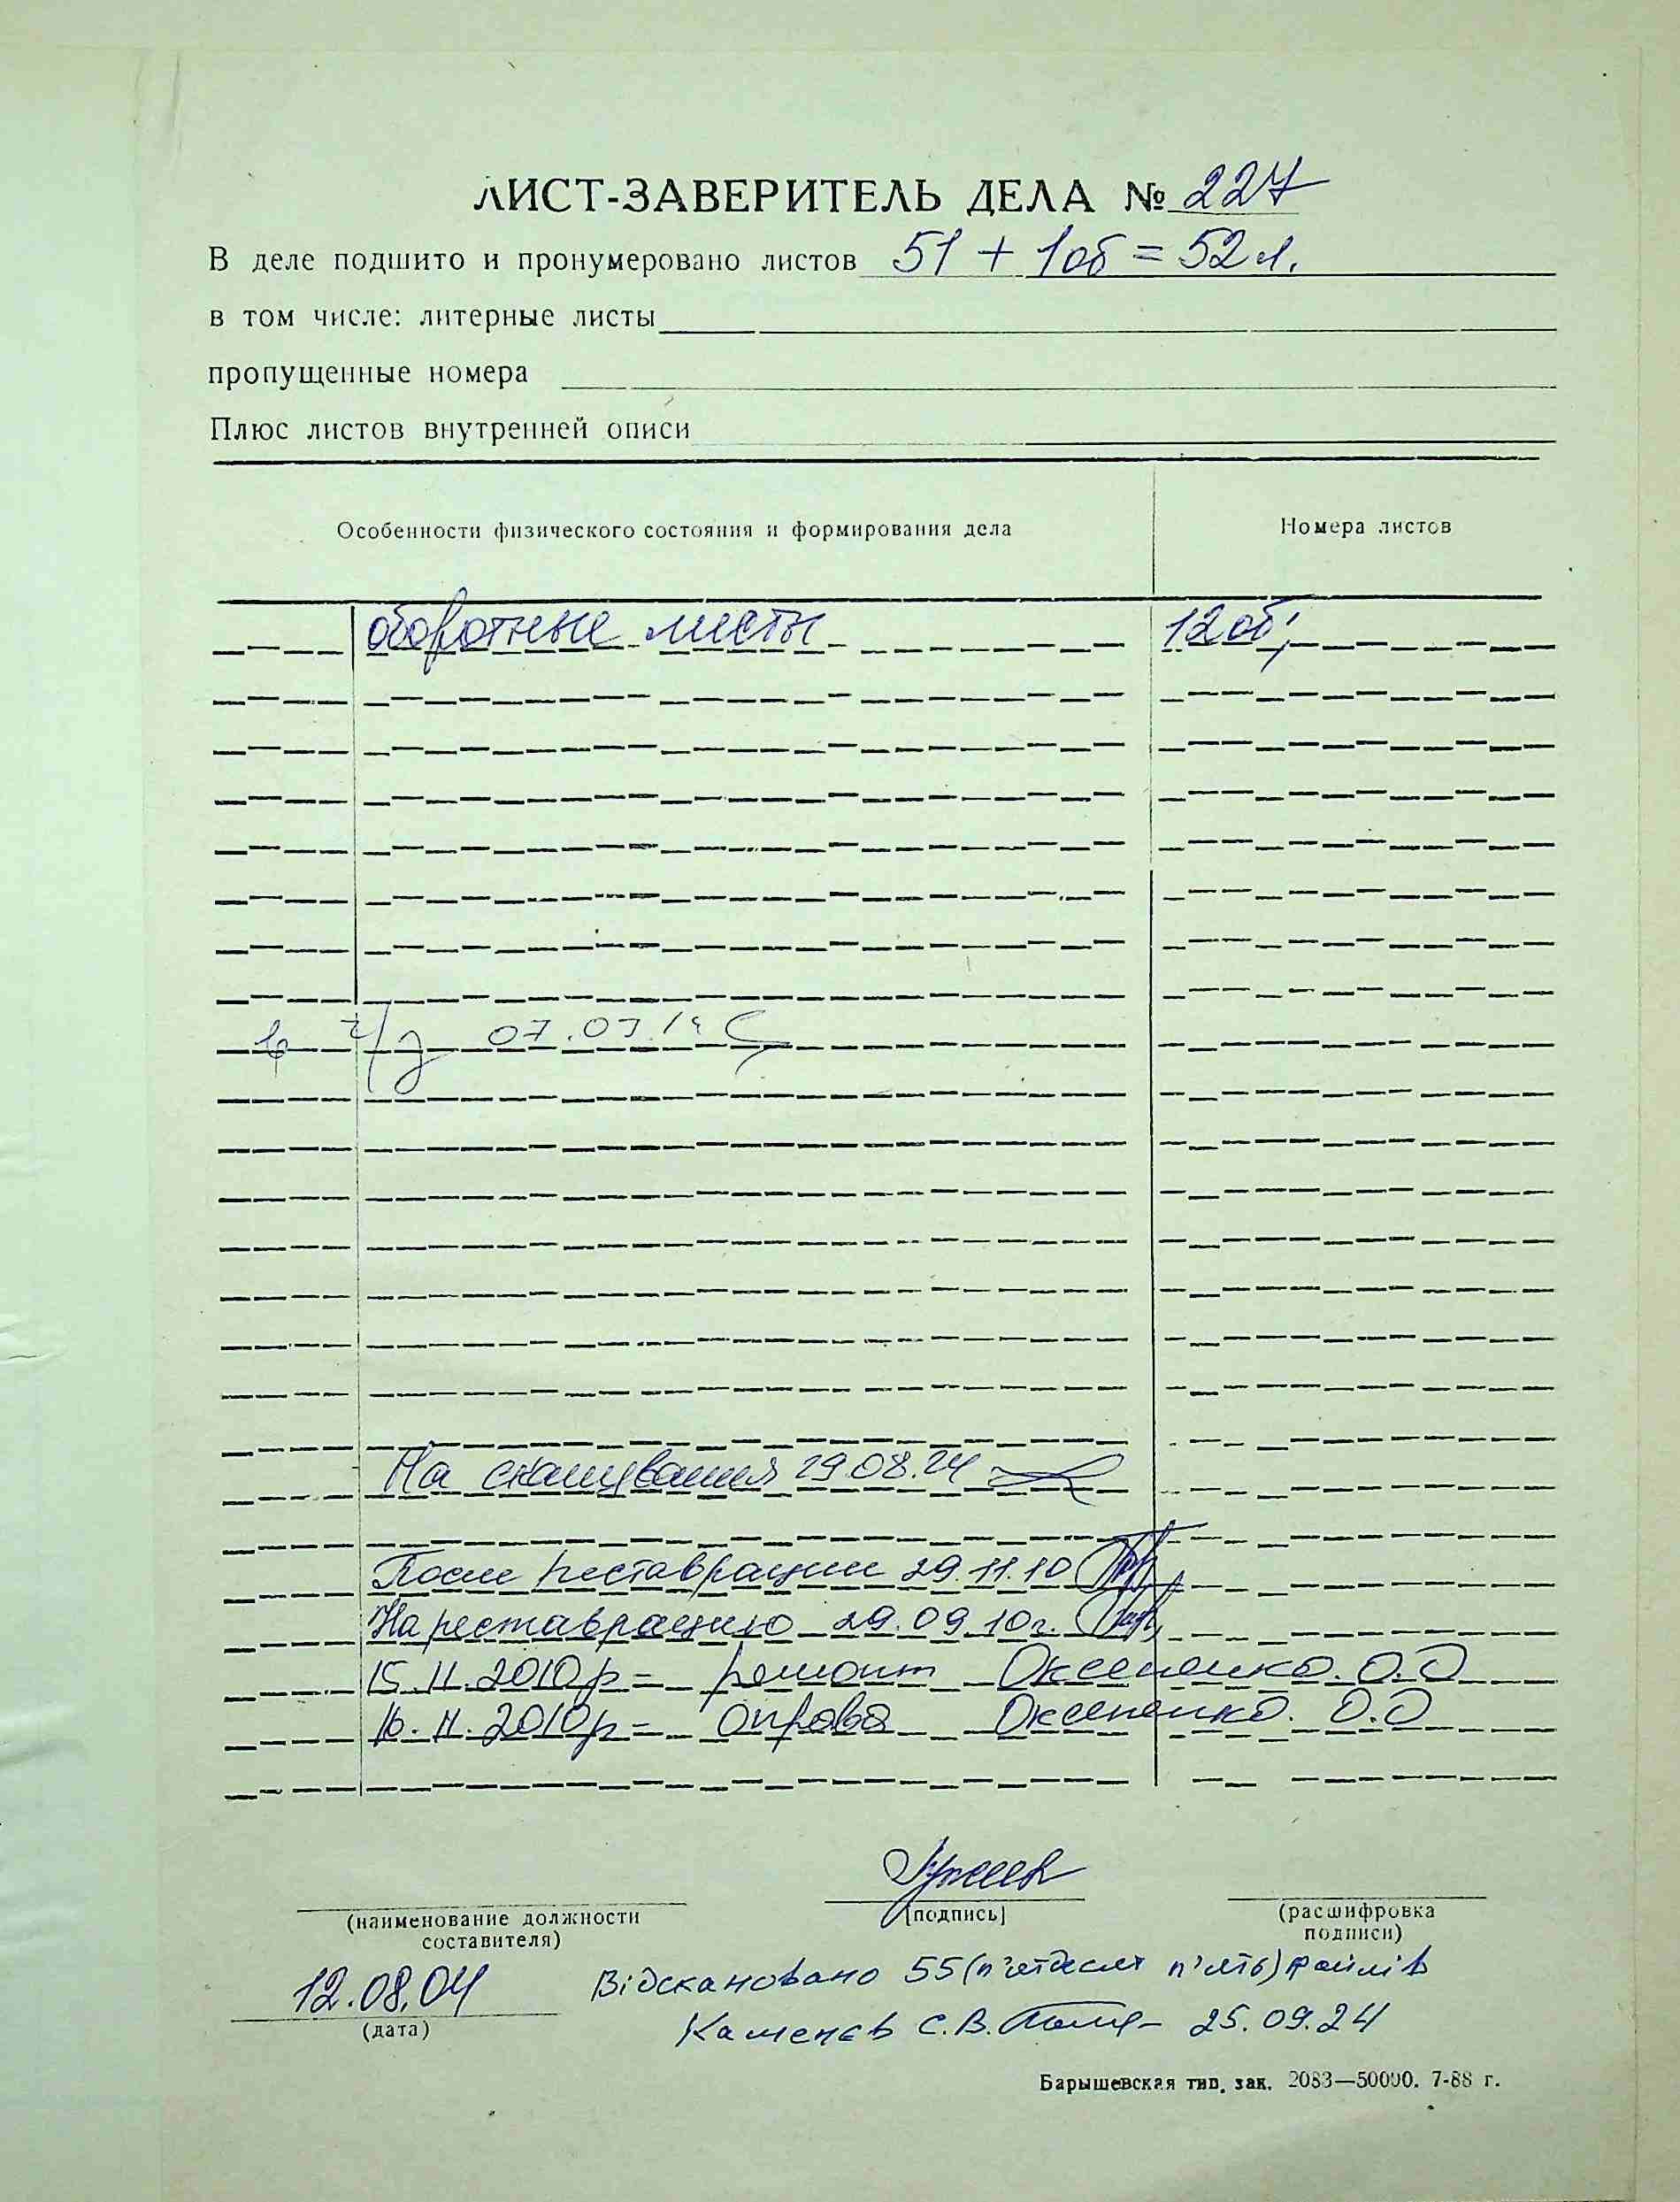 ЛИСТ-ЗАВЕРИТЕЛЬ ДЕЛА № 227
В деле подшито и пронумеровано листов 51 + 1об = 52 л.
в том числе: литерные листы
пропущенные номера
Плюс листов внутренней описи
Особенности физического состояния и формирования дела
Номера листов
оборотные листы 12об;
07.07.
На сканування 29.08.24
После реставрации 29.11.10
На реставрацию 29.09.10г.
15.11.2010р = ремонт Оксененко. О.О
16.11.2010р = оправа Оксененко. О.О
(наименование должности
составителя)
(подпись)
(расшифровка
подписи)
12.08.04
(дата)
Відскановано 55 (п'ятдесят п'ять) файлів
Каменєв С.В. 25.09.24
Барышевская тип. зак. 2083—50000. 7-88 г.